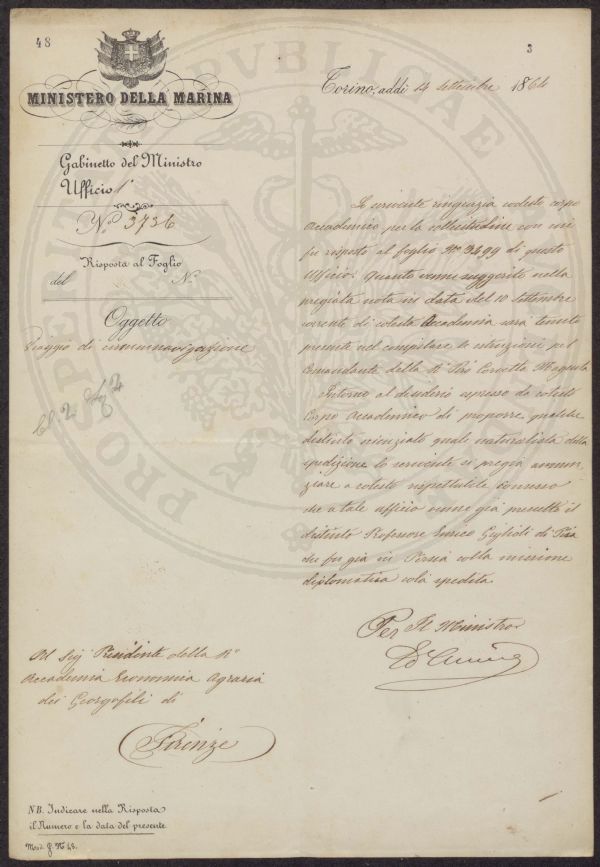 48
3
MINISTERO DELLA MARINA
Gabinetto del Ministro
Ufficio 1°
N.° 3736
Risposta al Foglio
del N.
Oggetto
Viaggio di circumnavigazione
Torino, addì 14 settembre 1864
Lo scrivente ringrazia codesto corpo
Accademico per la sollecitudine con cui
fu risposto al foglio N° 3499 di questo
Ufficio. Quanto venne suggerito nella
pregiata nota in data del 10 Settembre
corrente di cotesta Accademia sarà tenuto
presente nel compilare le istruzioni pel
Comandante della R. Piro Corvetta Magenta
Intorno al desiderio espresso da cotesto
Corpo Accademico di proporre qualche
distinto scienziato quale naturalista della
spedizione lo scrivente si pregia annun-
ziare a cotesto rispettabile consesso
che a tale ufficio venne già prescelto il
distinto Professore Enrico Giglioli di Pisa
che fu già in Persia colla missione
diplomatica colà spedita.
Per Il Ministro
Al Sig Presidente della R.
Accademia Economia Agraria
dei Georgofili di
Firenze
N.B. Indicare nella Risposta
il Numero e la data del presente
Mod. g. N° 43.
PRO PERITATI PVBLICAE